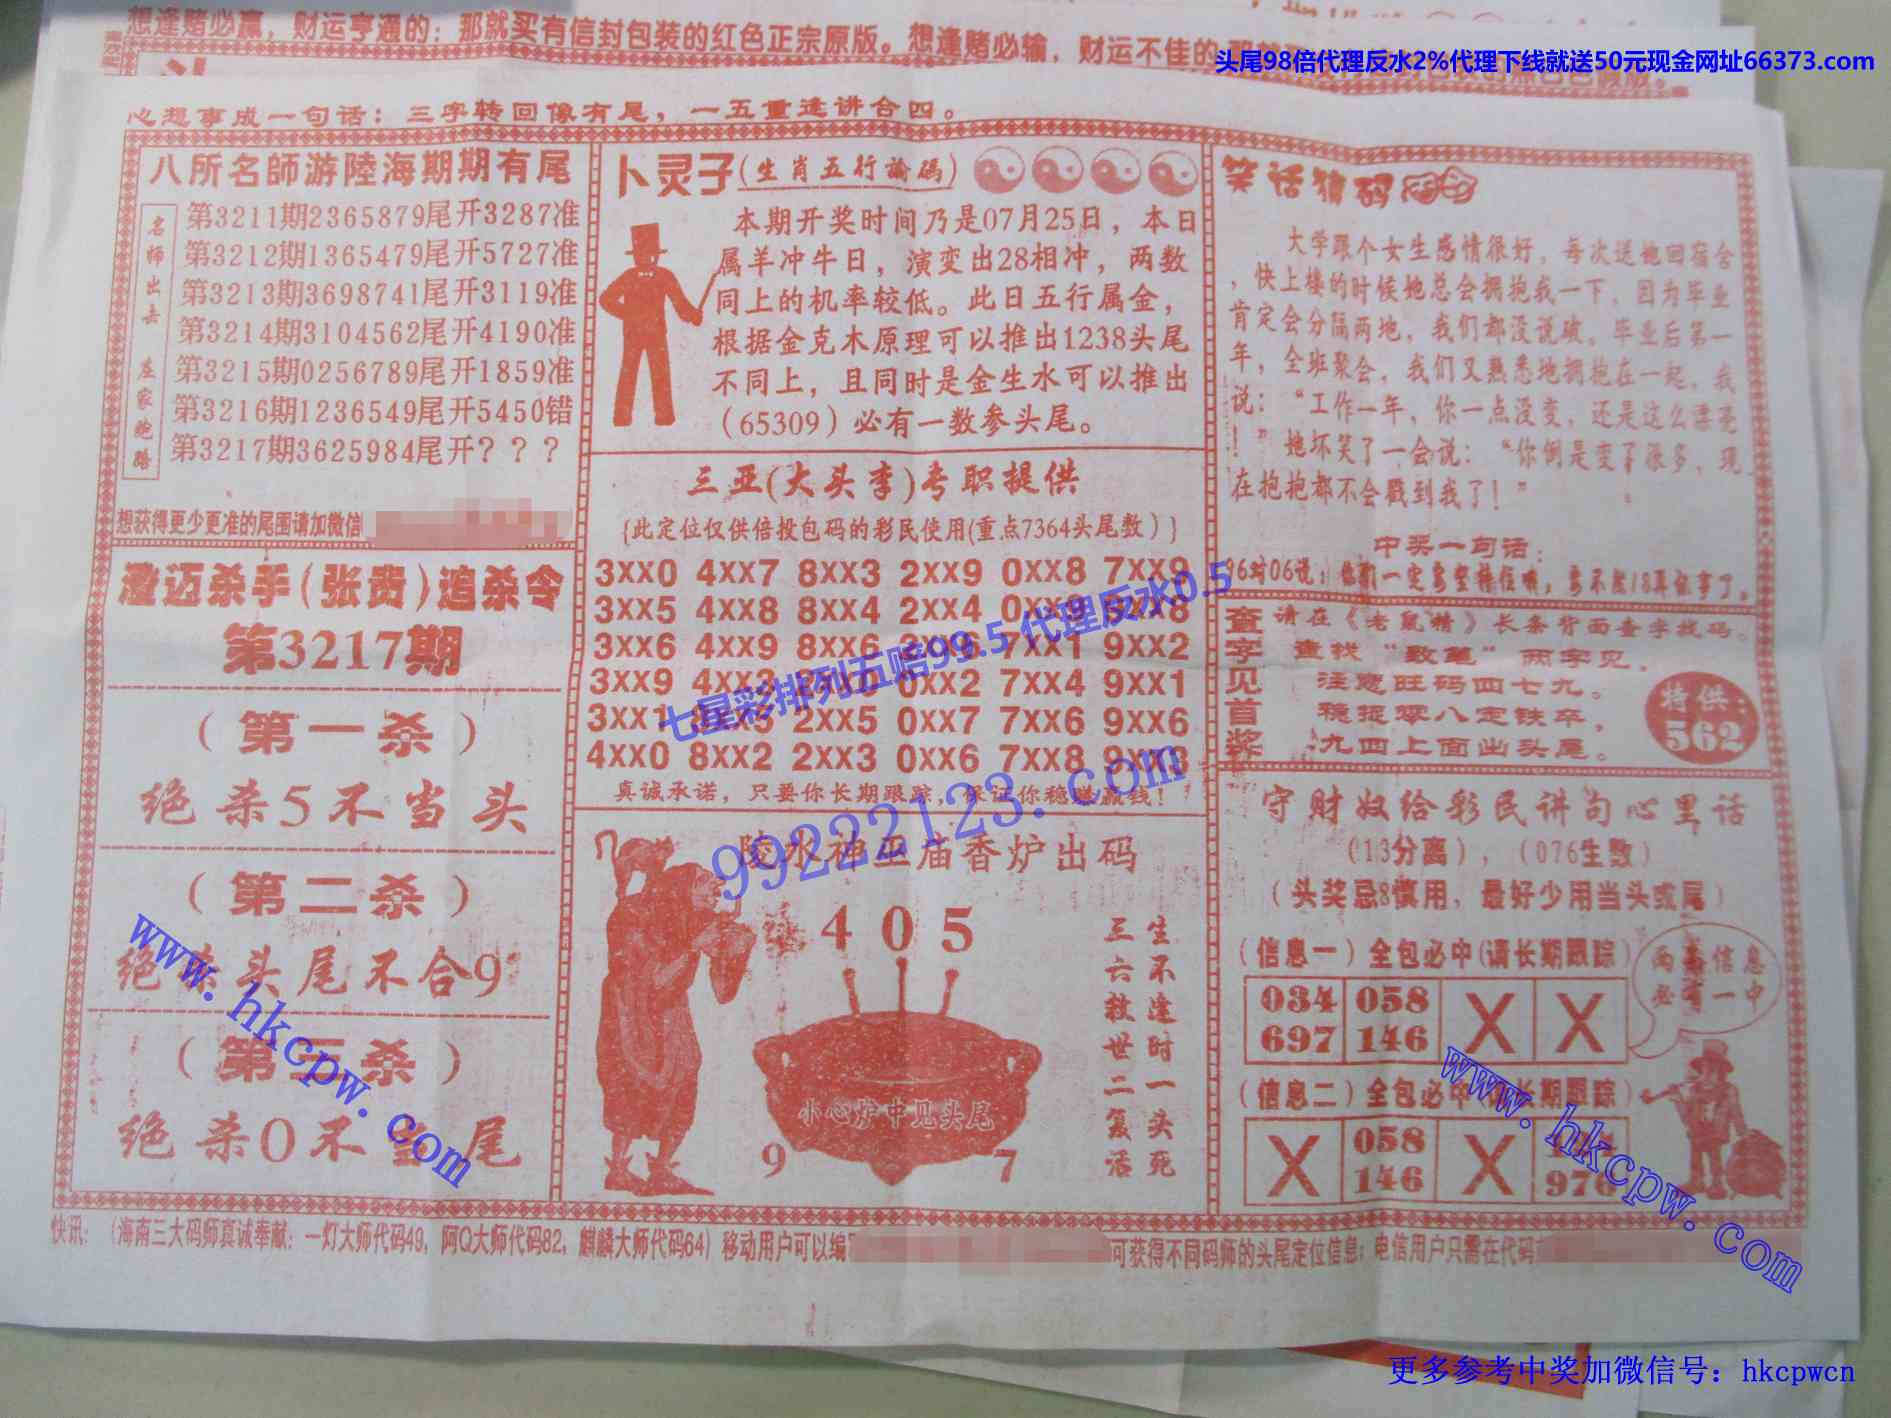 想逢赌必赢，财运亨通的：那就买有信封包装的红色正宗原版。想逢赌必输，财运不佳的
头尾98倍代理反水2%代理下线就送50元现金网址66373.com
心想事成一句话：三字转回像有尾，一五重逢讲合四。
八所名師游陸海期期有尾
名师出去 庄家跑路
第3211期2365879尾开3287准
第3212期1365479尾开5727准
第3213期3698741尾开3119准
第3214期3104562尾开4190准
第3215期0256789尾开1859准
第3216期1236549尾开5450错
第3217期3625984尾开？？？
想获得更少更准的尾围请加微信
澄迈杀手(张贵)追杀令
第3217期
（第一杀）
绝杀5不当头
（第二杀）
绝杀头尾不合9
（第三杀）
绝杀0不当尾
卜灵子(生肖五行論碼)
本期开奖时间乃是07月25日，本日
属羊冲牛日，演变出28相冲，两数
同上的机率较低。此日五行属金，
根据金克木原理可以推出1238头尾
不同上，且同时是金生水可以推出
（65309）必有一数参头尾。
三亚(大头李)专职提供
{此定位仅供倍投包码的彩民使用(重点7364头尾数）}
3XX0 4XX7 8XX3 2XX9 0XX8 7XX9
3XX5 4XX8 8XX4 2XX4 0XX9
3XX6 4XX9 8XX6 7XX1 9XX2
3XX9 0XX2 7XX4 9XX1
3XX1 2XX5 0XX7 7XX6 9XX6
4XX0 8XX2 2XX3 0XX6 7XX8 9XX3
真诚承诺，只要你长期跟踪，保证你稳赚赢钱！
七星彩排列五赔99.5 代理反水0.5
99222123.com
陵水神巫庙香炉出码
4 0 5
小心炉中见头尾
9 7
生不逢时一头死
三六救世二复活
笑话猜码
大学跟个女生感情很好，每次送她回宿舍
，快上楼的时候她总会拥抱我一下，因为毕业
肯定会分隔两地，我们都没说破，毕业后第一
年，全班聚会，我们又熟悉地拥抱在一起，我
说：“工作一年，你一点没变，还是这么漂亮
！”她坏笑了一会说：“你倒是变了很多，现
在抱抱都不会戳到我了！”
中奖一句话：
查字见首奖
请在《老鼠精》长条背面查字找码。
查找“数笔”两字见，
注意旺码四七九。
稳捉零八定铁卒，
九四上面出头尾。
特供：
562
守财奴给彩民讲句心里话
（13分离），（076生数）
（头奖忌8慎用，最好少用当头或尾）
（信息一）全包必中(请长期跟踪）
034 058 X X
697 146
两条信息
必有一中
（信息二）全包必中(请长期跟踪）
X 058 X
146 976
快讯：（海南三大码师真诚奉献：一灯大师代码49，阿Q大师代码82，麒麟大师代码64）移动用户可以编
可获得不同码师的头尾定位信息；电信用户只需在代码
www.hkcpw.com
www.hkcpw.com
更多参考中奖加微信号：hkcpwcn